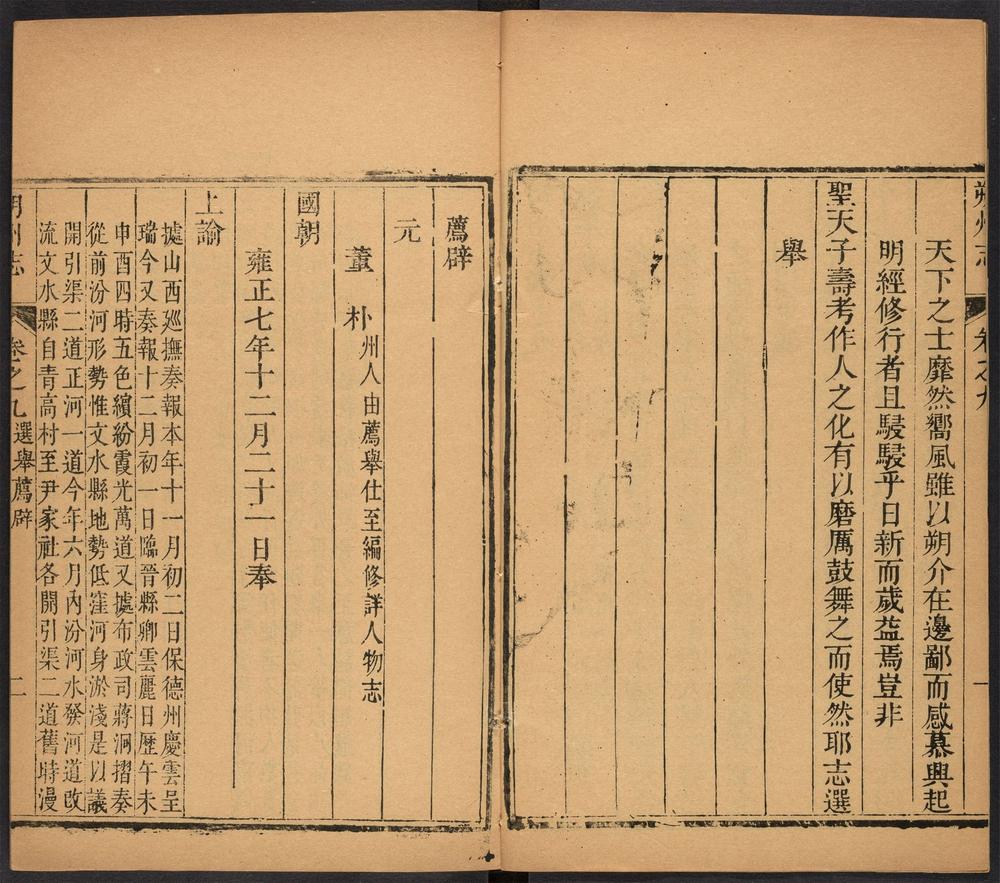 朔州志 卷之九 一
天下之士靡然嚮風雖以朔介在邊鄙而感慕興起
明經修行者且駸駸乎日新而歲益焉豈非
聖天子壽考作人之化有以磨厲鼓舞之而使然耶志選
舉
薦辟
元
董 朴州人由薦舉仕至編修詳人物志
國朝
雍正七年十二月二十二日奉
上諭
據山西廵撫奏報本年十一月初二日保德州慶雲呈
瑞今又奏報十二月初一日臨晉縣卿雲麗日歷午未
申酉四時五色繽紛霞光萬道又據布政司蔣泂摺奏
從前汾河形勢惟文水縣地勢低窪河身淤淺是以議
開引渠二道正河一道今年六月內汾河水發河道改
流文水縣自青高村至尹家社各開引渠二道舊時漫
朔州志 卷之九 選舉薦辟 二